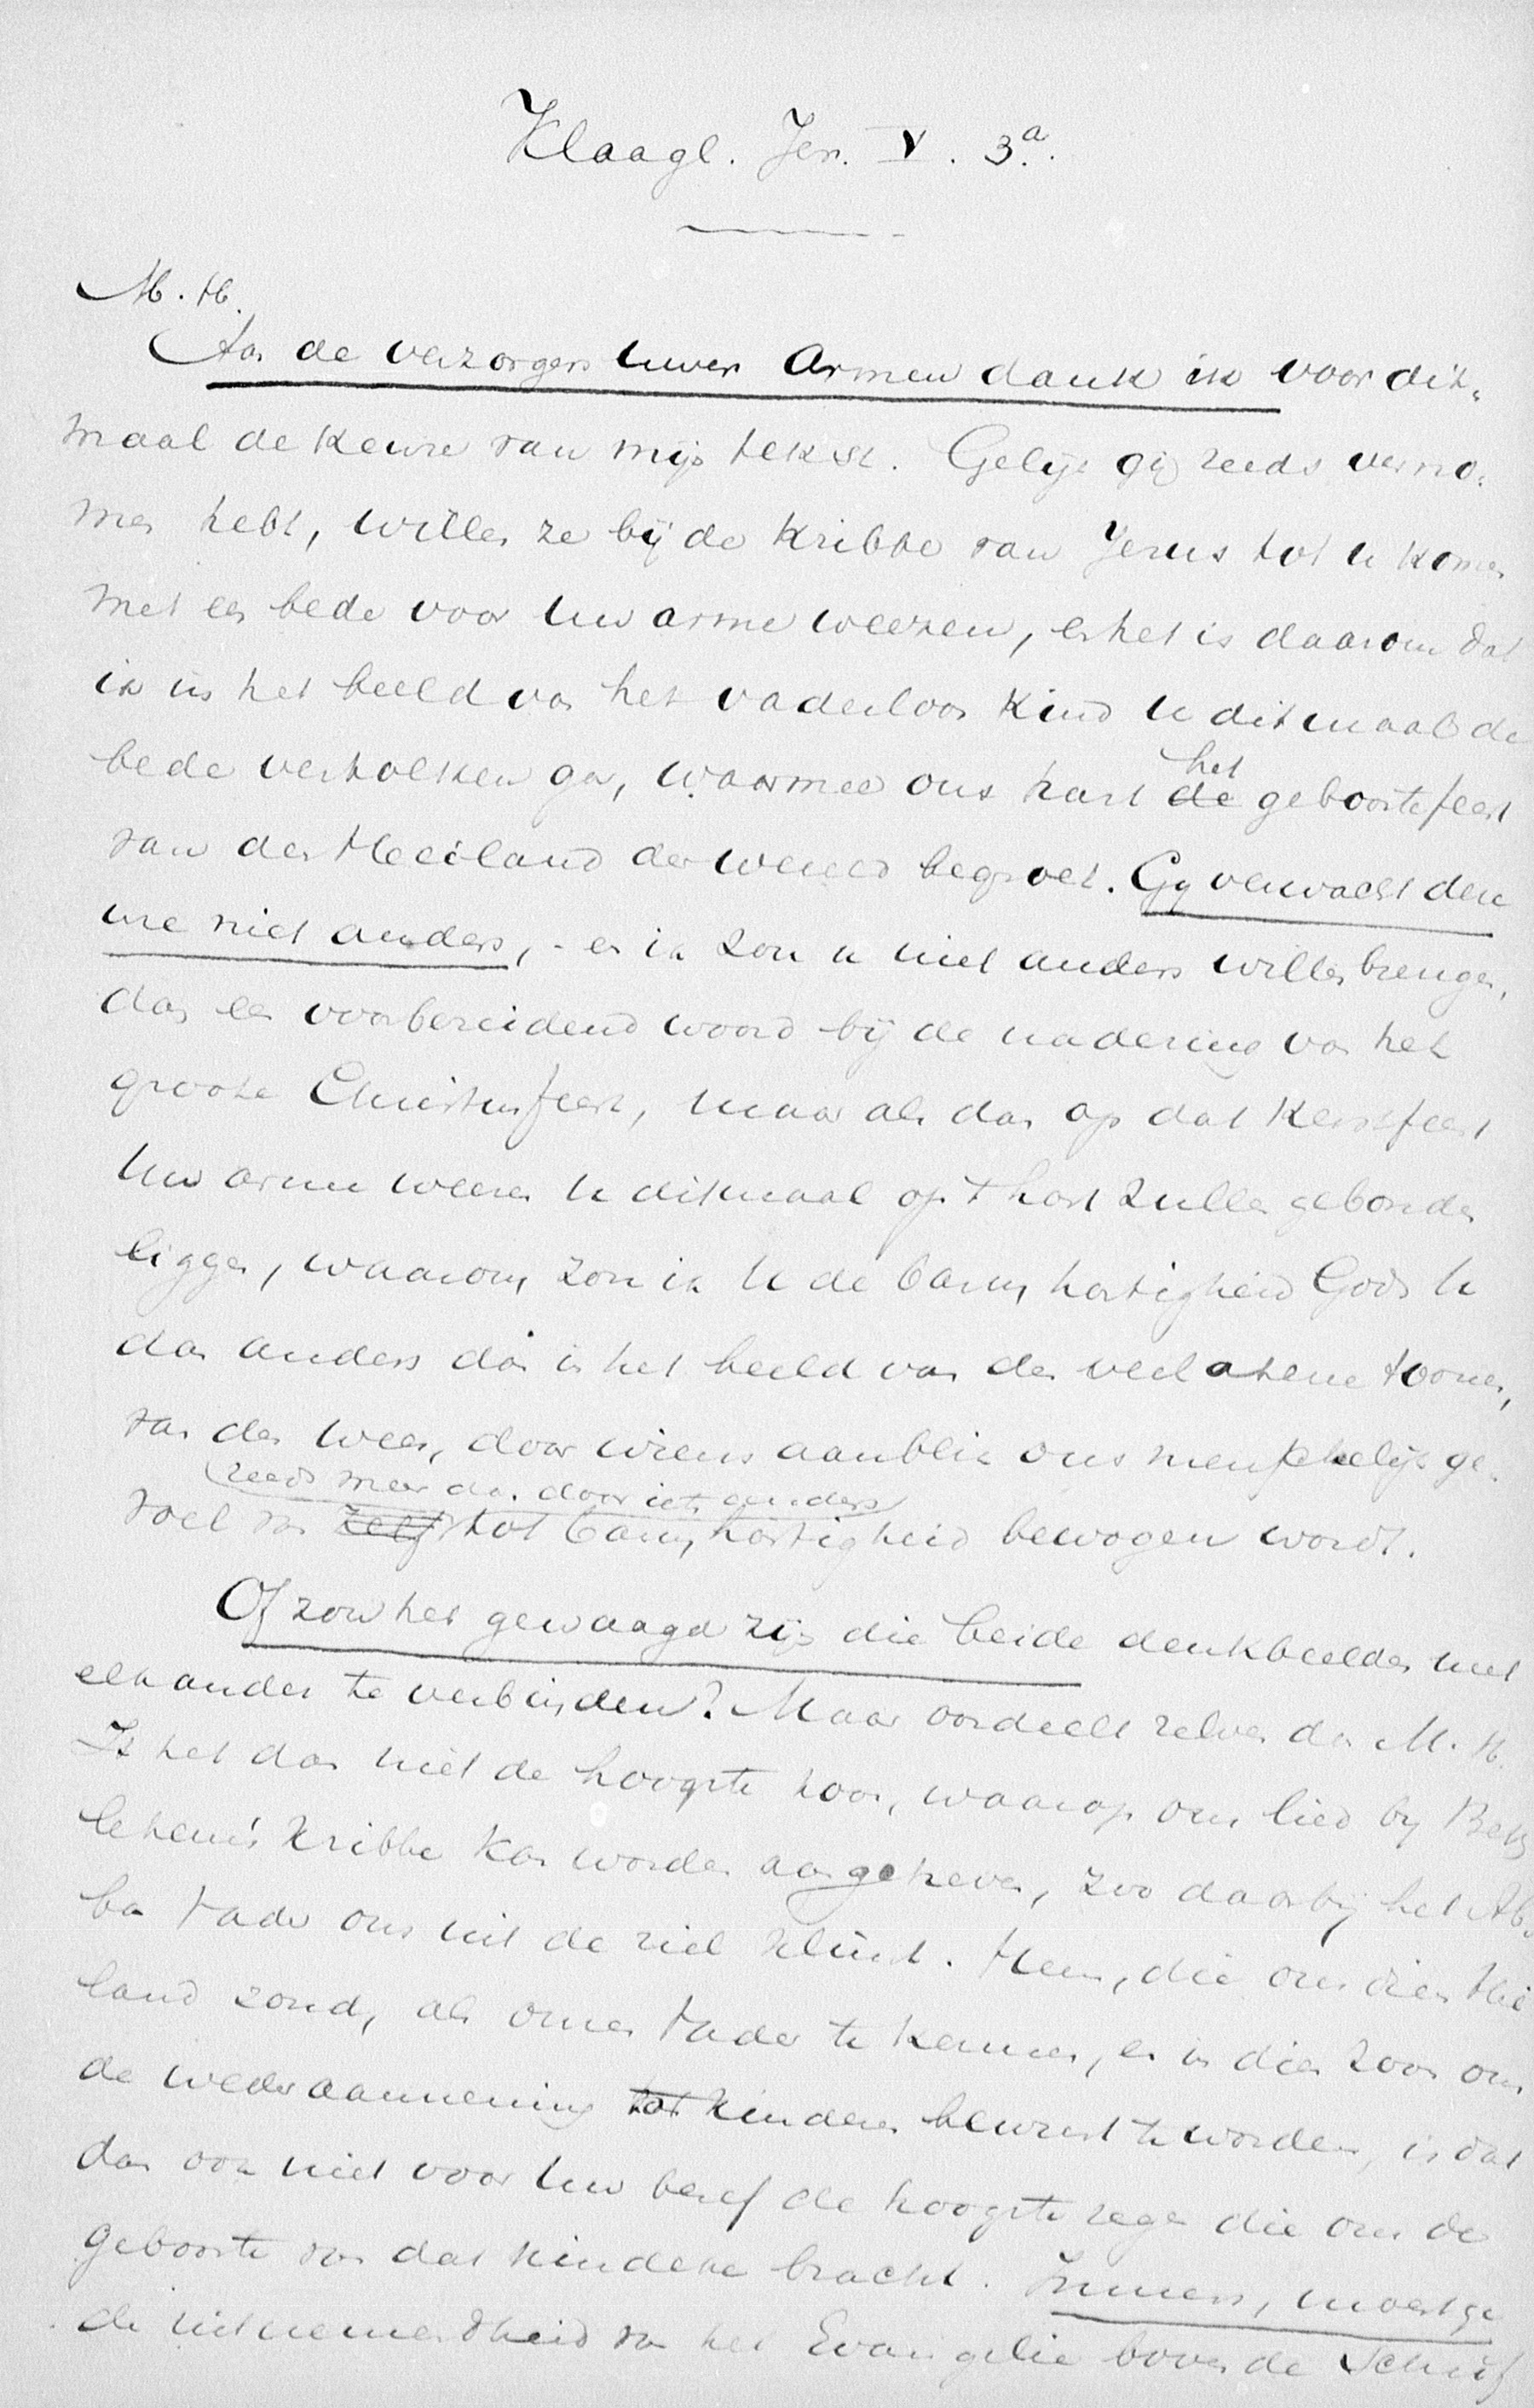 Klaagl. Jer. V. 3.a.
M. H.
Aan de verzorgers uwer armen dank ik voor dit-
maal de keuze van mijn tekst. Gelijk gij reeds verno-
men hebt, willen ze bij de kribbe van Jezus tot u komen
met een bede voor uw arme weezen, en het is daarom dat
ik in het beeld van het vaderloos kind u ditmaal de
bede vertolken ga, waarmee ons hart de het geboortefeest
van den Heiland der wereld begroet. Gy verwacht deze
ure niet anders, - en ik zou u niet anders willen brengen,
dan een voorbereidend woord bij de nadering van het
groote Christusfeest, maar als dan op dat Kersfeest
uw arme weezen u ditmaal op 't hart zullen gebonden
liggen, waarom zou ik u de barmhartigheid Gods u
dan anders dan in het beeld van den verlatene toonen,
van den wees, door wiens aanblik ons menschelijk ge-
reeds meer dan door iets anders
voel van zelf tot barmhartigheid bewogen wordt.
Of zou het gewaagd zijn die beide denkbeelden met
elkander te verbinden? Maar oordeelt zelven dan M. H.
Is het dan niet de hoogste toon, waarop ons lied by Beth
lehems kribbe kan worden aangeheven, zoo daarbij het Ab-
ba Vader ons uit de ziel klinkt. Hem, die ons dien Hei
land zond, als onzen Vader te kennen, en in dien Zoon ons
de wederaanneming tot kinderen bewust te worden, is dat
dan ook niet voor uw besef de hoogste zegen die ons de
geboorte van dat kindeke bracht. Immers, moest ge
de uitnemendheid van het Evangelie boven de Schrif